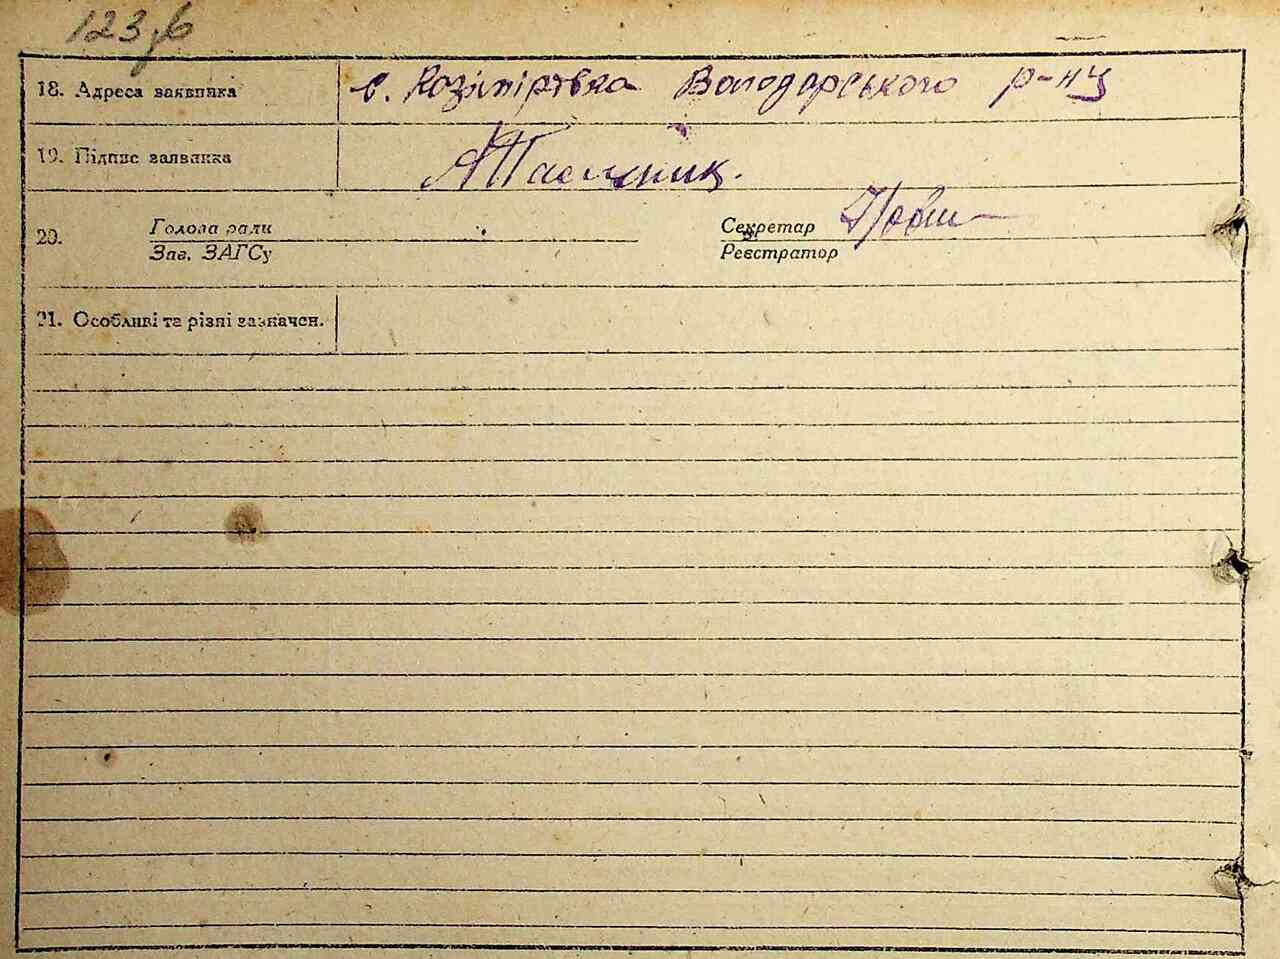 123
18. Адреса заявника с. Козіпірівка Володарського р-ну
19. Підпис заявника
20. Голова ради Секретар
Зав. ЗАГСу Реєстратор
21. Особливі та різні зазначен.